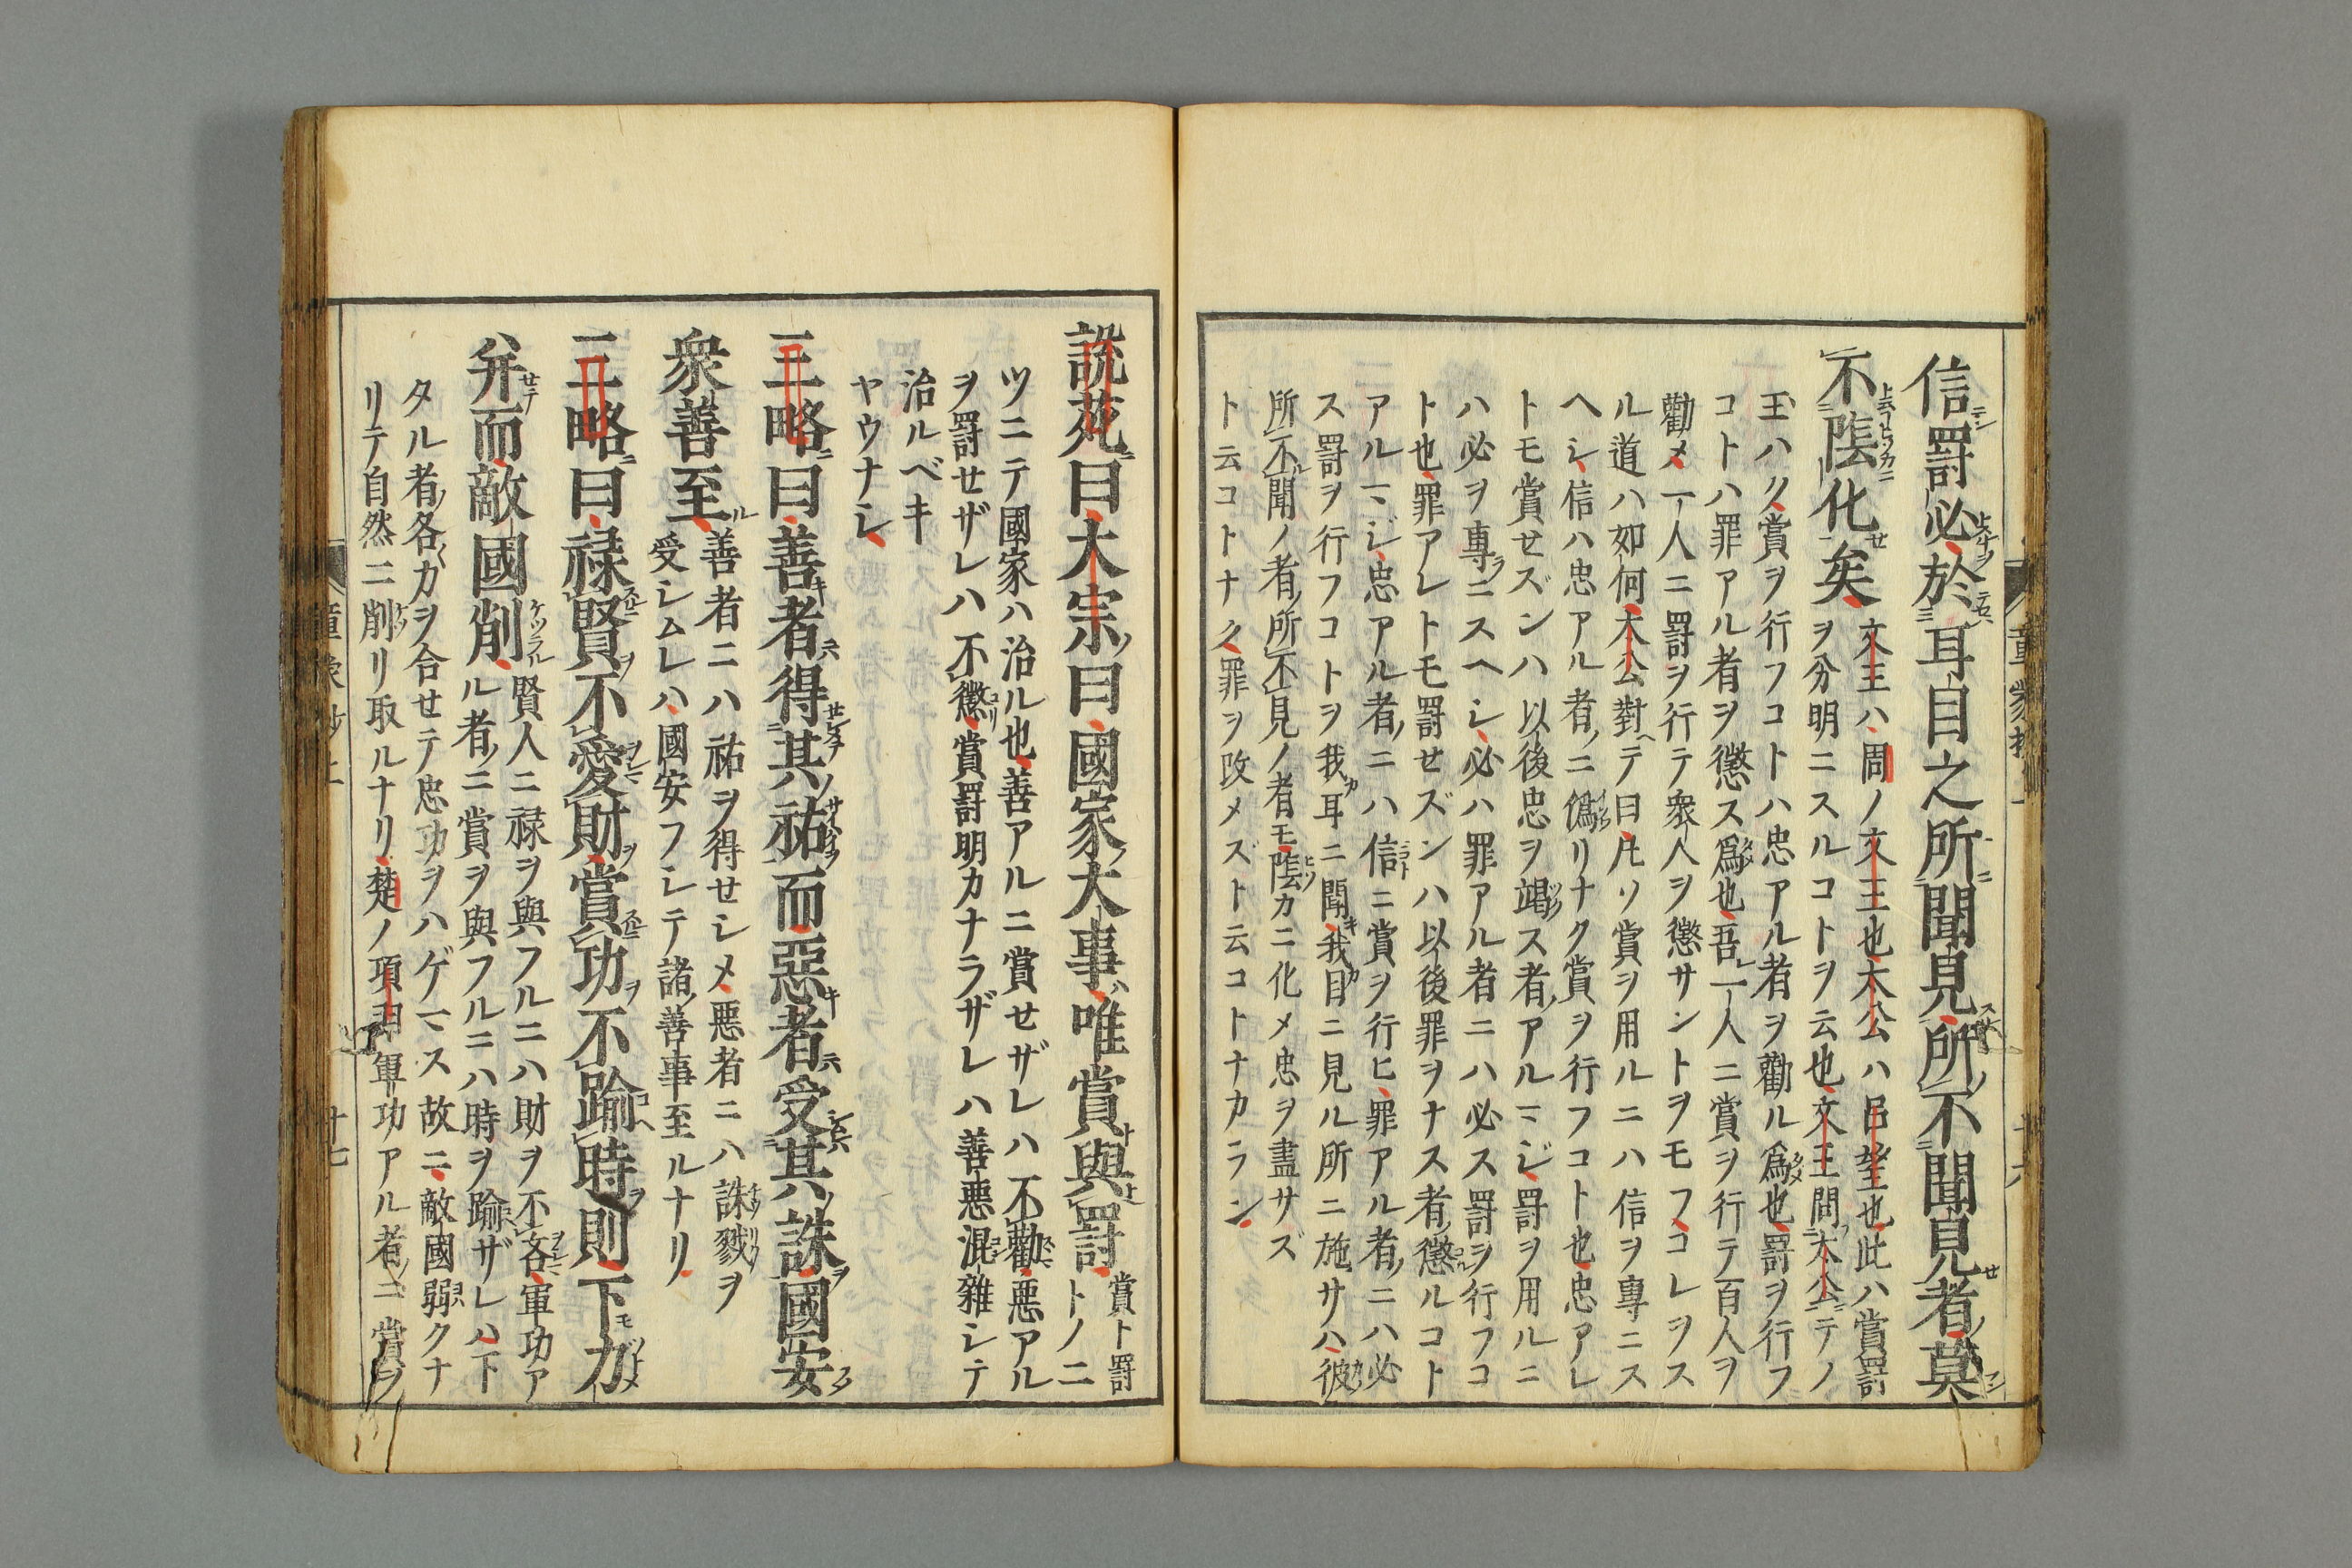 信罰必於耳目之所聞見所不聞見者莫
不陰化矣文王ハ周ノ文王也太公ハ呂望也此ハ賞罰
ヲ分明ニスルコトヲ云也文王問太公ニテノ
玉ハク賞ヲ行フコトハ忠アル者ヲ勸ル爲也罰ヲ行フ
コトハ罪アル者ヲ懲ス爲也吾レ一人ニ賞ヲ行テ百人ヲ
勸メ一人ニ罰ヲ行テ衆人ヲ懲サントヲモフコレヲス
ル道ハ如何太公對ヘテ曰凡ソ賞ヲ用ルニハ信ヲ專ニス
ヘシ信ハ忠アル者ニ僞リナク賞ヲ行フコト也忠アレ
トモ賞セズンハ以後忠ヲ竭ス者アルマジ罰ヲ用ルニ
ハ必ヲ專ラニスヘシ必ハ罪アル者ニハ必ス罰ヲ行フコ
ト也罪アレトモ罰セズンハ以後罪ヲナス者懲ルコト
アルマジ忠アル者ニハ信ニ賞ヲ行ヒ罪アル者ニハ必
ス罰ヲ行フコトヲ我耳ニ聞キ我目ニ見ル所ニ施サハ彼
所不聞ノ者所不見ノ者モ陰カニ化メ忠ヲ盡サズ
ト云コトナク罪ヲ改メズト云コトナカラン
説苑曰大宗曰國家大事唯賞與罰賞ト罰
トノ二
ツニテ國家ハ治ル也善アルニ賞セザレハ不勸惡アル
ヲ罰セザレハ不懲賞罰明カナラザレハ善惡混雜シテ
治ルベキ
ヤウナシ
三略曰善者得其祐而惡者受其誅國安
衆善至善者ニハ祐ヲ得セシメ惡者ニハ誅戮ヲ
受シムレハ國安フシテ諸善事至ルナリ
三略曰禄賢不愛財賞功不踰時則下力
并而敵國削賢人ニ禄ヲ與フルニハ財ヲ不吝軍功ア
ル者ニ賞ヲ與フルニハ時ヲ踰ザレハ下
タル者各力ヲ合セテ忠功ヲハゲマス故ニ敵國弱クナ
リテ自然ニ削リ取ルナリ楚ノ項羽軍功アル者ニ賞ヲ
十七